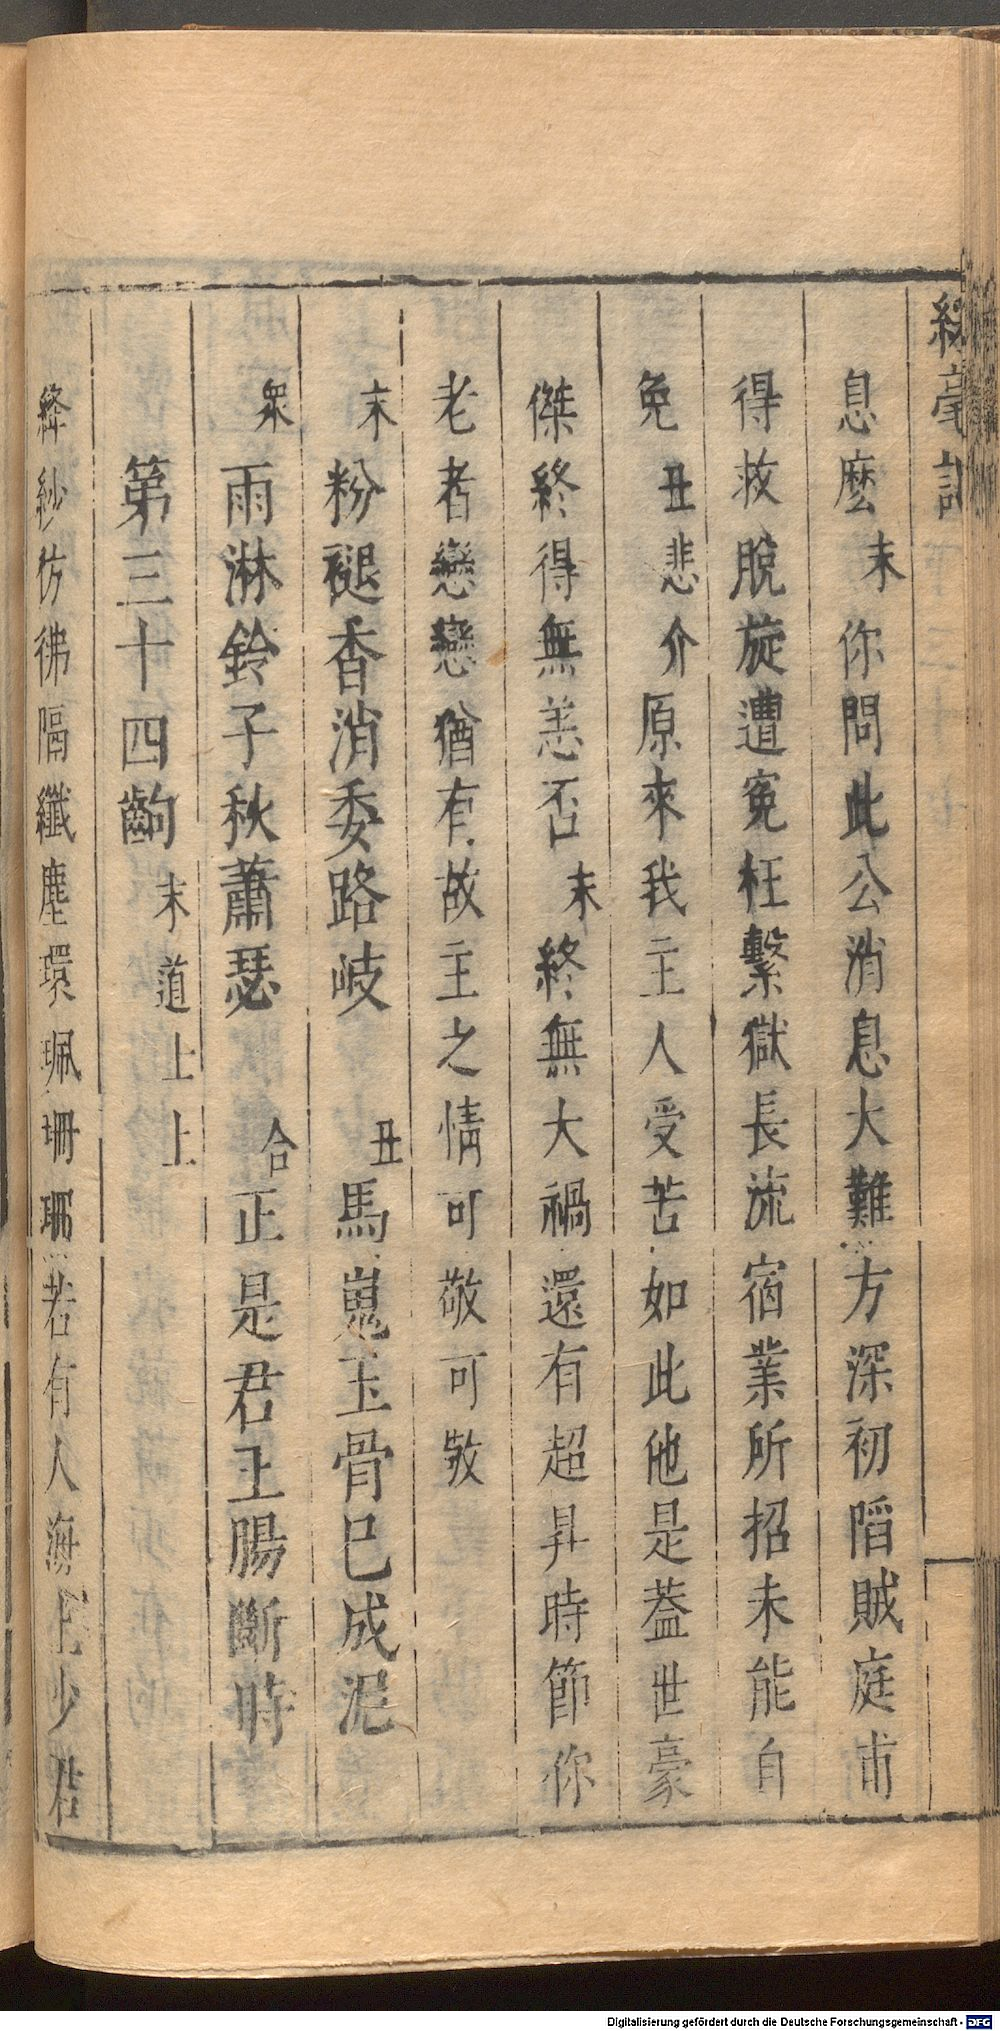 綵毫記
息麼末你問此公消息大難方深初陷賊庭甫
得救脫旋遭寃枉繫獄長流宿業所招未能自
免丑悲介原來我主人受苦如此他是葢世豪
傑終得無恙否末終無大禍還有超昇時節你
老者戀戀猶有故主之情可敬可敬
末粉褪香消委路岐 丑馬嵬玉骨已成泥
衆雨淋鈴子秋蕭瑟 合正是君王腸斷時
第三十四齣末道上上
絳紗彷彿隔纖塵環珮珊珊若有人海上少君
Digitalisierung gefördert durch die Deutsche Forschungsgemeinschaft - DFG